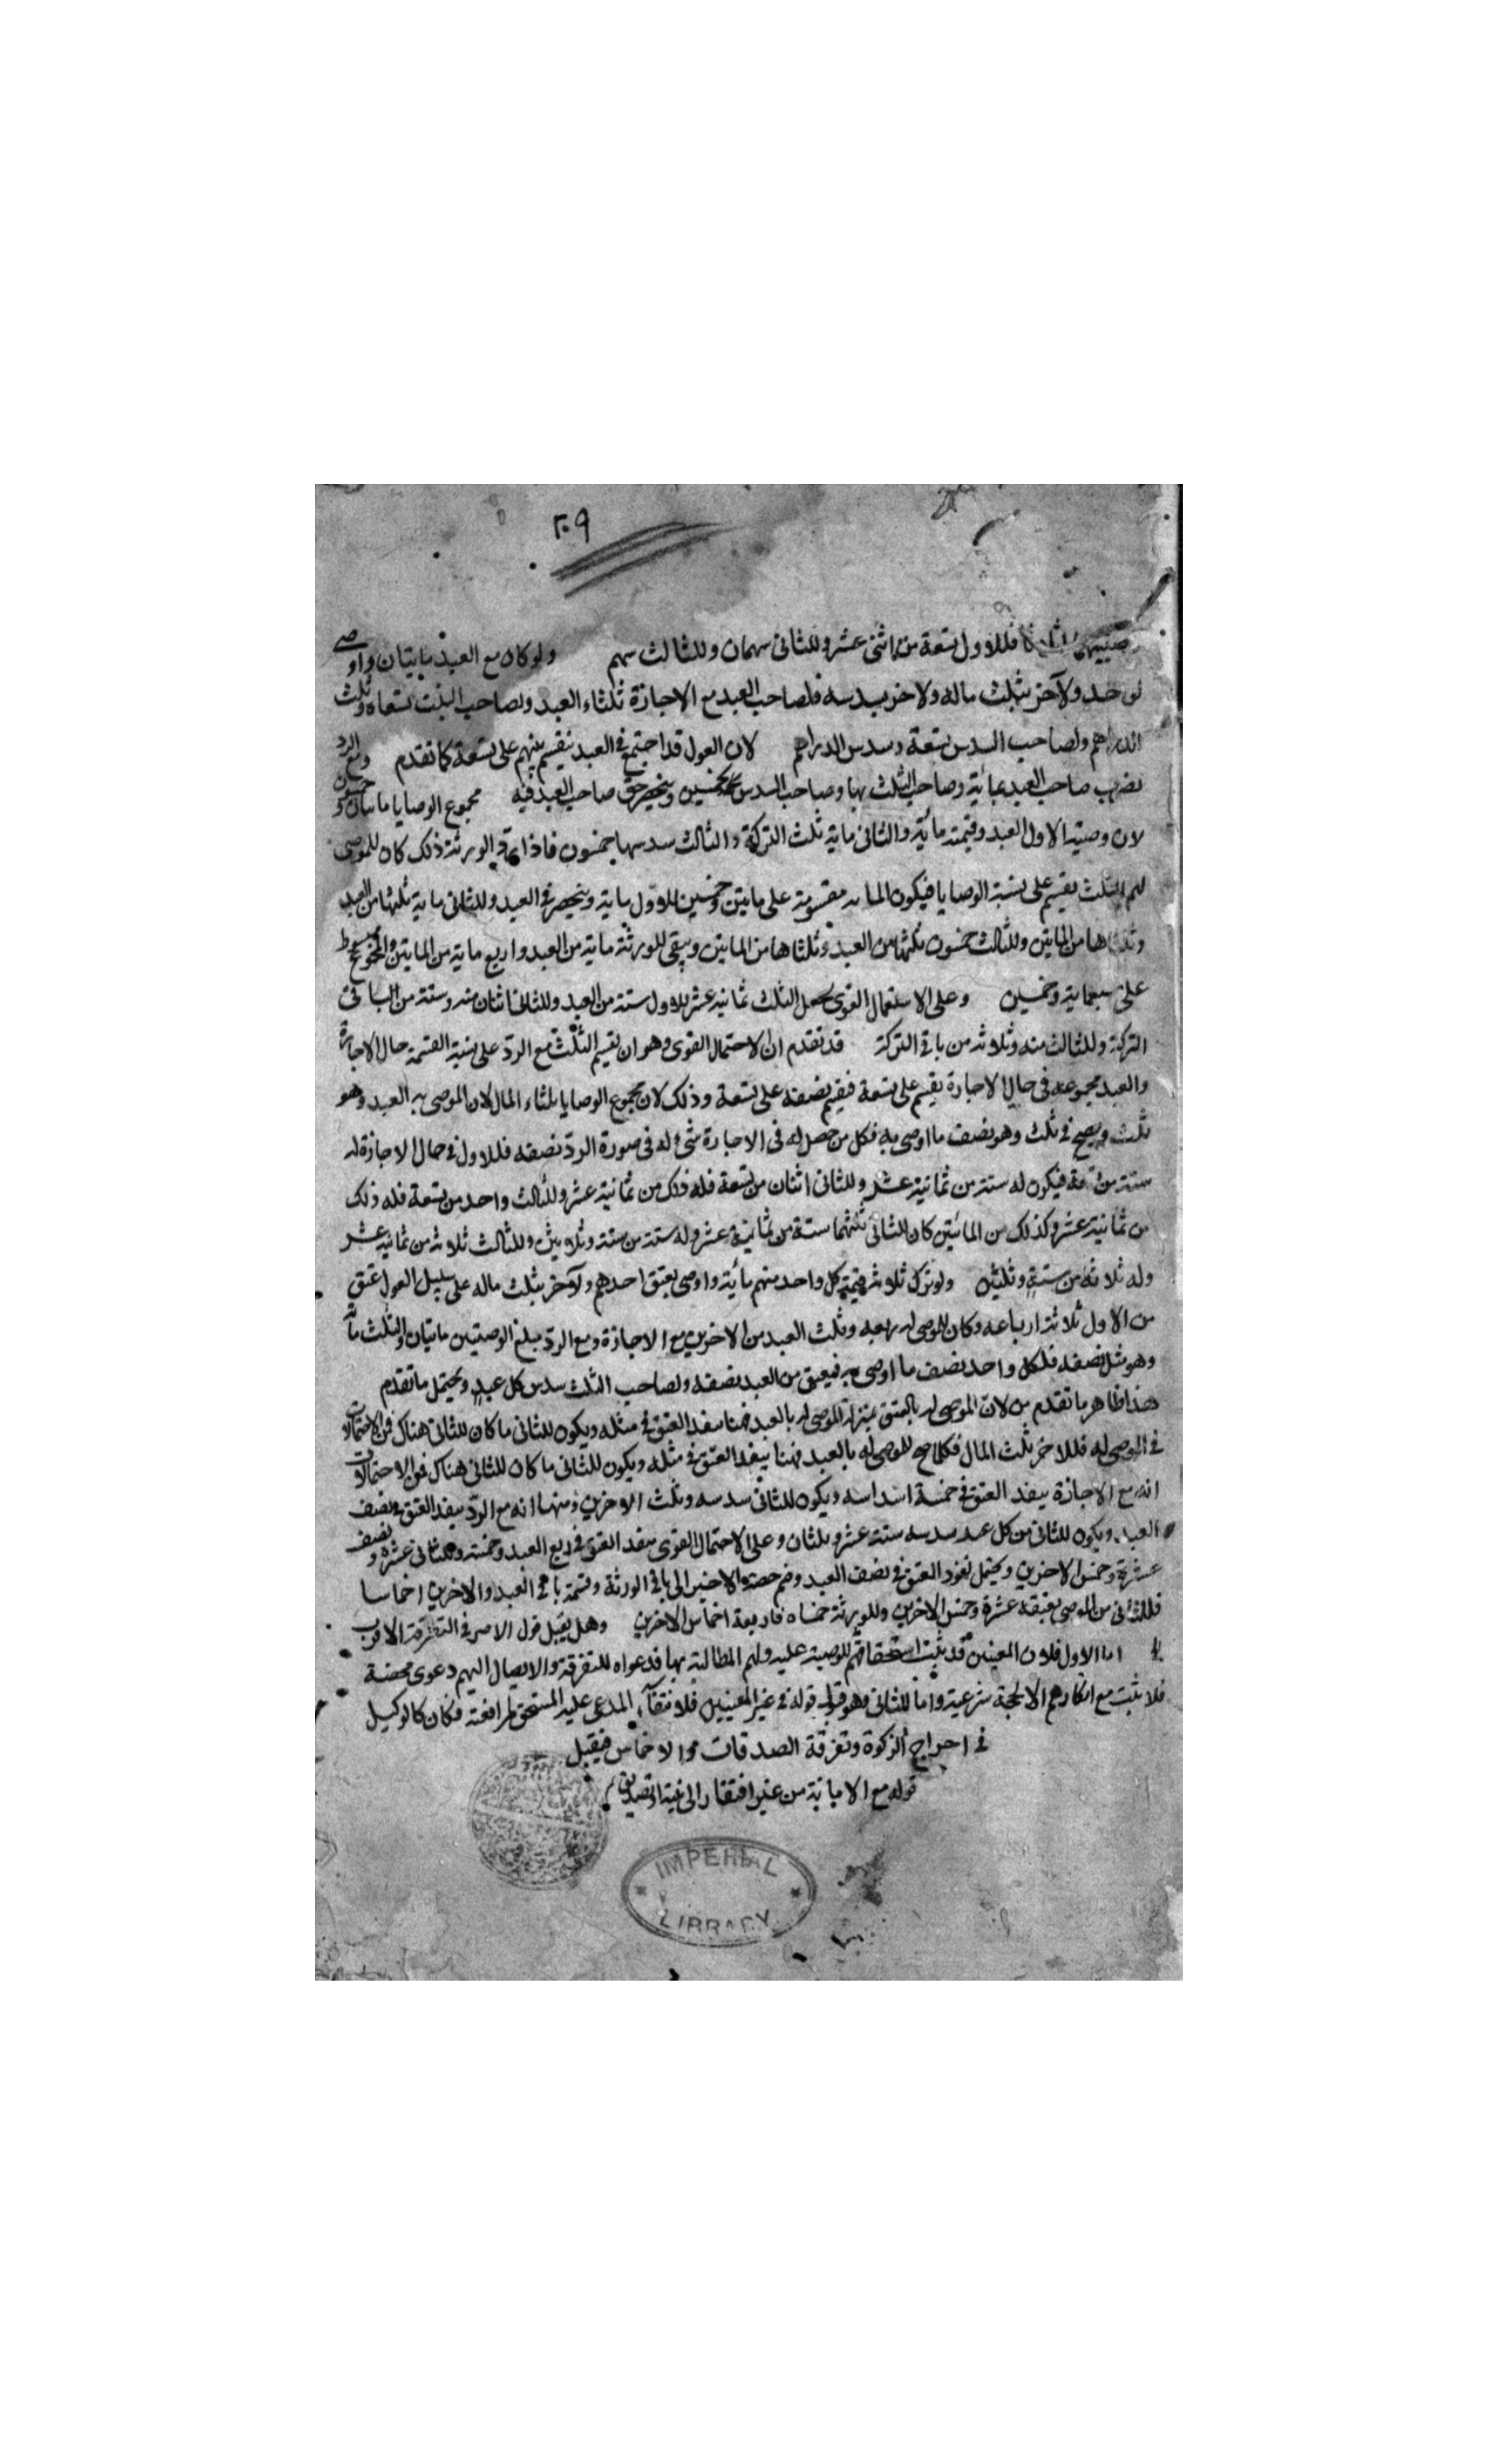 ٢٠٩
فللاول تسعة من اثنى عشر وللثانى سهمان وللثالث سهم ولو كان مع العبد مايتان واوصى
ولآخر بثلث ماله ولاخر بسدسه فلصاحب العبد مع الاجازة ثلثاء العبد ولصاحب الثلث تسعاه وثلث
الدراهم ولصاحب السدس تسعة وسدس الدراهم لان العول قد اجتمع فى العبد فيقسم بينهم على تسعة كما تقدم ومع الرد
يضرب صاحب العبد بمائة وصاحب الثلث بها وصاحب السدس بخمسين وينحصر حق صاحب العبد فيه مجموع الوصايا مايتان وخمسون
لان وصية الاول العبد وقيمته مائة والثانى ماية ثلث التركة والثالث سدسها خمسون فاذا الورثة ذلك كان للموصى
لهم الثلث يقسم على نسبة الوصايا فيكون مقسومة على مايتين وخمسين للاول ماية وينحصر فى العبد وللثانى ماية ثلثها من العبد
وثلثاها من المايتين وللثالث خمسون ثلثها من العبد وثلثاها من المايتين ويبقى للورثة ماية من العبد واربع ماية من المايتين
على سبعماية وخمسين وعلى الاحتمال القوى يجعل الثلث ثمانية عشر للاول ستة من العبد وللثانى اثنان منه وستة من الباقى
التركة وللثالث منه وثلاثه من باقى التركة قد تقدم ان الاحتمال القوى وهو ان تقسيم الثلث مع الرد على نسبة القسمة حال الاجازة
والعبد مجموعه فى حال الاجازة يقسم على تسعة فقسم نصفه على تسعة وذلك لان مجموع الوصايا ثلثاء المال لان الموصى به العبد وهو
ثلث ويصح فى ثلث وهو نصف ما اوصى به فكل من حصل له فى الاجازة شئ له فى صورة الرد نصفه فللاول فى حال الاجازة له
ستة من تسعة فيكون له ستة من ثمانية عشر وللثانى اثنان من تسعة فله ذلك من ثمانية عشر وللثالث واحد من تسعة فله ذلك
من ثمانية عشر وكذلك من المائتين كان للثانى ثلثهما ستة من ثمانية عشر وله ستة من ستة وثلاثين وللثالث ثلاثه من ثمانية عشر
وله ثلاثه من ستة وثلثين ولو ترك ثلاثه قيمة كل واحد منهم مائة واوصى بعتق احدهم ولآخر بثلث ماله على سبيل العول عتق
من الاول ثلاثة ارباعه وكان للموصى له ربعه وثلث العبد من الاخرين مع الاجازة ومع الرد مبلغ الوصيتين مايتان والثلث ماية
وهو مثل نصفه فلكل واحد نصف ما اوصى به فيعتق من العبد نصفه ولصاحب الثلث سدس كل عبد ويحتمل ما تقدم
هذا ظاهر ما تقدم من لان الموصى له بالعتق بمنزلة الموصى له بالعبد فهنا ينفذ العتق فى مثله ويكون للثانى ما كان للثانى هناك فمن الاحتمالات
فى الموصى له فللاخر ثلث المال فكلما صح للموصى له بالعبد فهنا ينفذ العتق فى مثله ويكون للثانى ما كان للثانى هناك فمن الاحتمالات
انه مع الاجازة ينفذ العتق فى خمسة اسداسه ويكون للثانى سدسه وثلث الاخرين ومنها انه مع الرد ينفذ العتق فى نصف
العبد ويكون للثانى من كل عبد سدسه ستة عشر وثلثان وعلى الاحتمال القوى ينفذ العتق فى ربع العبد وخمسه وللثانى عشره ونصف
عشره وخمس الاخرين ويحتمل نفوذ العتق فى نصف العبد وضم حصته الاخير الى باقى الورثة وقسمة باقى العبد والاخرين اخماسا
فللثانى من الموصى بعتقه عشره وخمس الاخرين وللورثة خمساه واربعة اخماس الاخرين وهل يقبل قول الاصر فى التفرقة الاقرب
لا اما الاول فلان المعينين قد ثبت استحقاقهم للوصية عليه ولهم المطالبة بها فدعواه للتفرقة والايصال اليهم دعوى محضة
فلا يثبت مع انكارهم الا بحجة شرعية واما الثانى وهو قبول قوله فى غير المعينين فلانتفاء المدعى عليه المستحق لمرافعته فكان كالوكيل
فى اخراج الزكوة وتفرقة الصدقات والاخماس فيقبل
قوله مع الامانة من غير افتقار الى بينة او تصديق
IMPERIAL LIBRARY